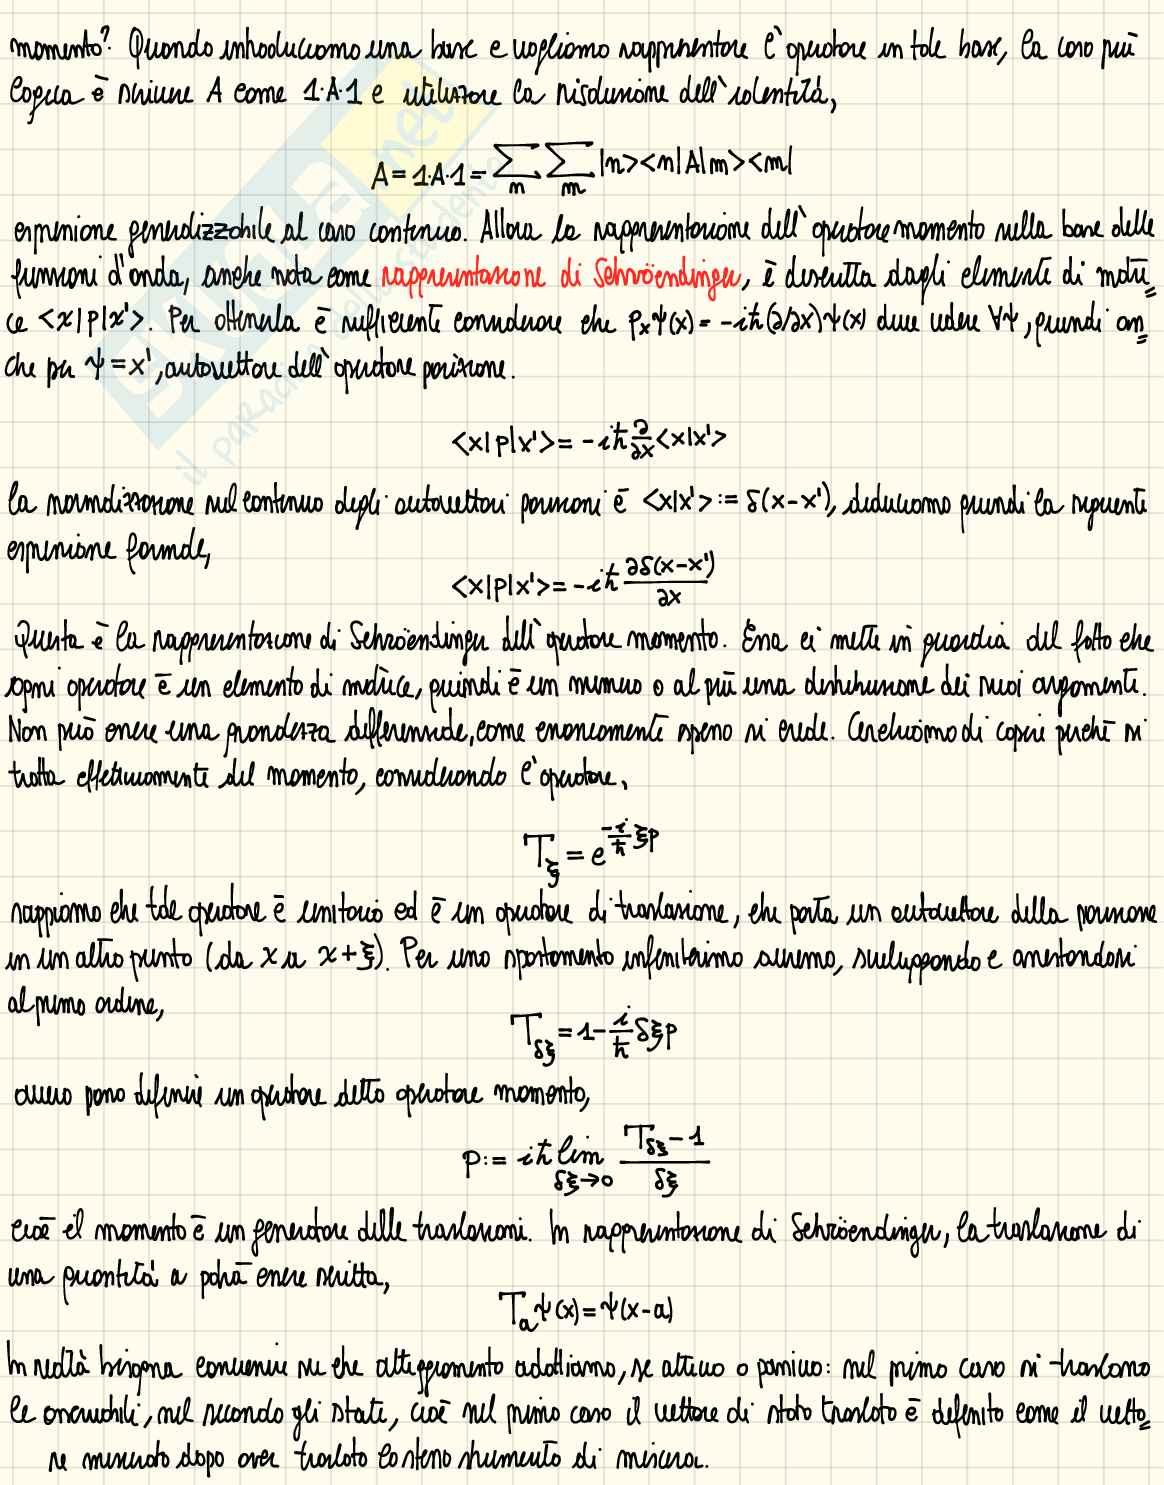 momento? Quando introduciamo una base e vogliamo rappresentare l'operatore in tale base, la cosa più
logica è scrivere A come 1·A·1 e utilizzare la risoluzione dell'identità,
A = 1·A·1 = ∑n ∑m |n><n|A|m><m|
espressione generalizzabile al caso continuo. Allora la rappresentazione dell'operatore momento nella base delle
funzioni d'onda, anche nota come rappresentazione di Schröendinger, è descritta dagli elementi di matri
ce <x|p|x'>. Per ottenerla è sufficiente considerare che pₓψ(x) = -iħ(∂/∂x)ψ(x) deve valere ∀ψ, quindi an
che per ψ = x', autovettore dell'operatore posizione.
<x|p|x'> = -iħ ∂/∂x <x|x'>
la normalizzazione nel continuo degli autovettori posizioni è <x|x'> := δ(x-x'), deduciamo quindi la seguente
espressione formale,
<x|p|x'> = -iħ ∂δ(x-x')/∂x
Questa è la rappresentazione di Schröendinger dell'operatore momento. Essa ci mette in guardia del fatto che
ogni operatore è un elemento di matrice, quindi è un numero o al più una distribuzione dei suoi argomenti.
Non può essere una grandezza differenziale, come erroneamente spesso si crede. Cerchiamo di capire perché si
tratta effettivamente del momento, considerando l'operatore,
T_ξ = e^(-i/ħ ξp)
sappiamo che tale operatore è unitario ed è un operatore di traslazione, che porta un autovettore della posizione
in un altro punto (da x a x+ξ). Per uno spostamento infinitesimo avremo, sviluppando e arrestandosi
al primo ordine,
T_δξ = 1 - i/ħ δξp
ovvero posso definire un operatore detto operatore momento,
p := iħ lim δξ→0 (T_δξ - 1)/δξ
cioè il momento è un generatore delle traslazioni. In rappresentazione di Schröendinger, la traslazione di
una quantità a potrà essere scritta,
T_a ψ(x) = ψ(x-a)
In realtà bisogna convenire su che atteggiamento adottiamo, se attivo o passivo: nel primo caso si traslano
le osservabili, nel secondo gli stati, cioè nel primo caso il vettore di stato traslato è definito come il vetto
re misurato dopo aver traslato lo stesso strumento di misura.
skuola.net
il paradiso dello studente